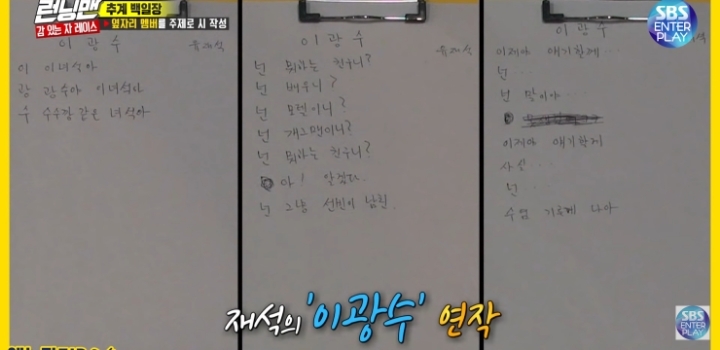 런닝맨
감 있는 자 레이스
추계 백일장
▶ 옆자리 멤버를 주제로 시 작성
SBS
ENTER
PLAY
이 광 수
유재석
이 이녀석아
광 광수야 이녀석아
수 수수깡 같은 녀석아
이 광 수
유재석
넌 뭐하는 친구니?
넌 배우니?
넌 모델이니?
넌 개그맨이니?
넌 뭐하는 친구니?
아! 알겠다.
넌 그냥 선빈이 남친.
이 광 수
석
이제야 얘기할게...
넌...
넌 말이야..
이제야 얘기할게
사실...
넌..
수염 기르게 나아
재석의 '이광수' 연작
SBS
ENTER
PLAY